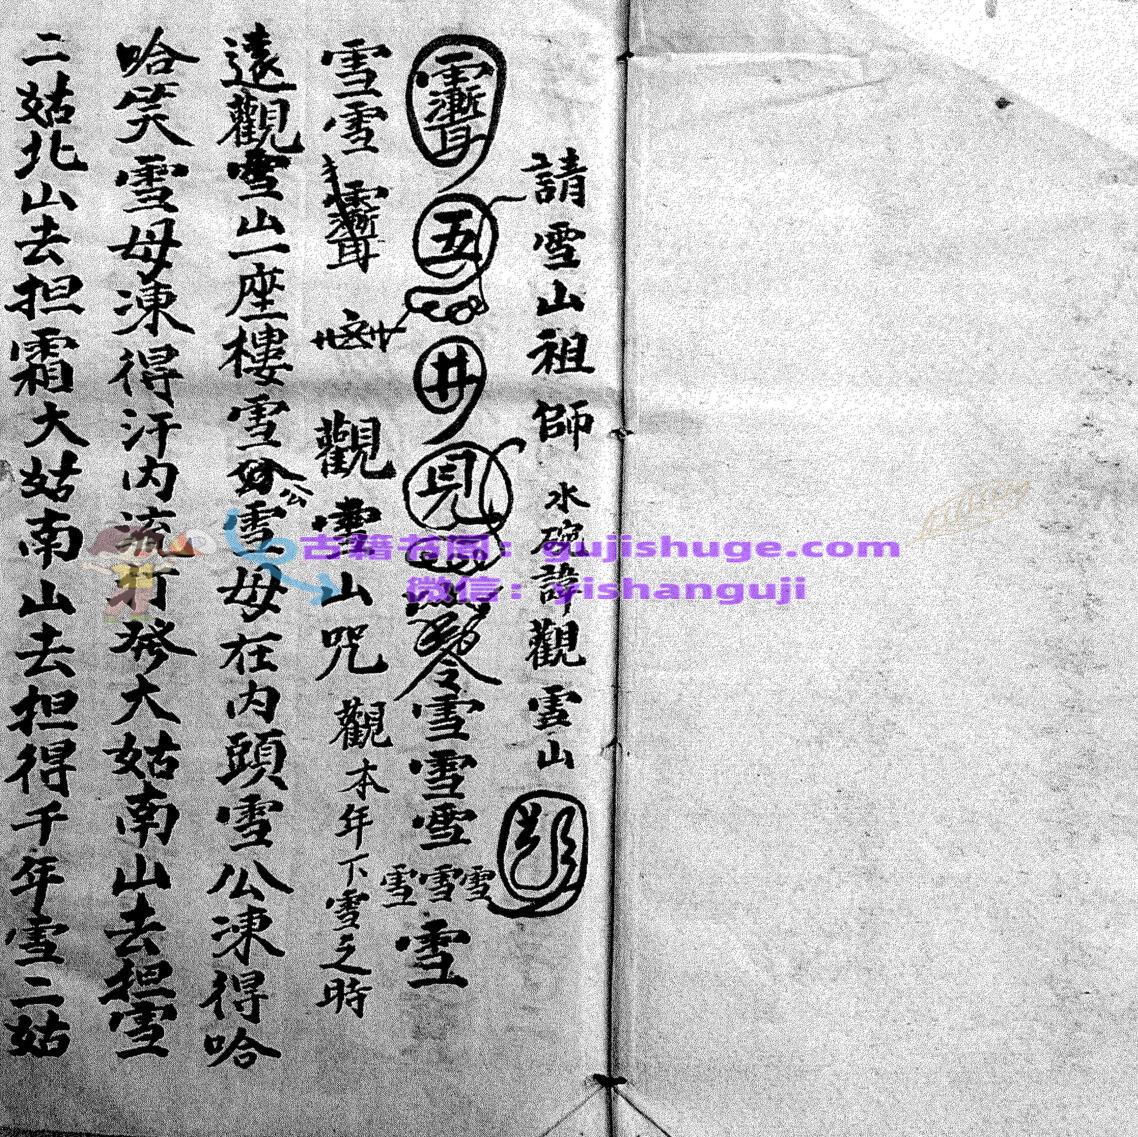 請雪山祖師 水碗諱觀雪山
五 井 見 雪雪雪雪雪雪雪
雪雪 觀雪山咒 觀本年下雪之時
遠觀雪山一座樓雪公雪母在内頭雪公凍得哈
哈笑雪母凍得汗内流打發大姑南山去担雪
二姑北山去担霜大姑南山去担得千年雪二姑
古籍书阁：gujishuge.com
微信：yishanguji